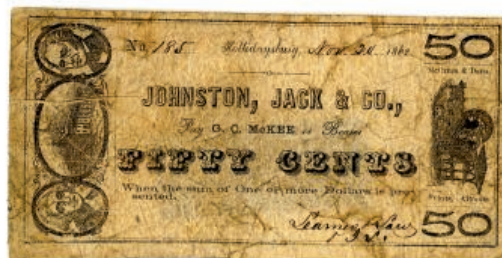 No. 185 Hollidaysburg, Nov. 20 1862
50
JOHNSTON, JACK & CO.,
Pay G. C. McKEE or Bearer
FIFTY CENTS
When the sum of One or more Dollars is pre-
sented.
50